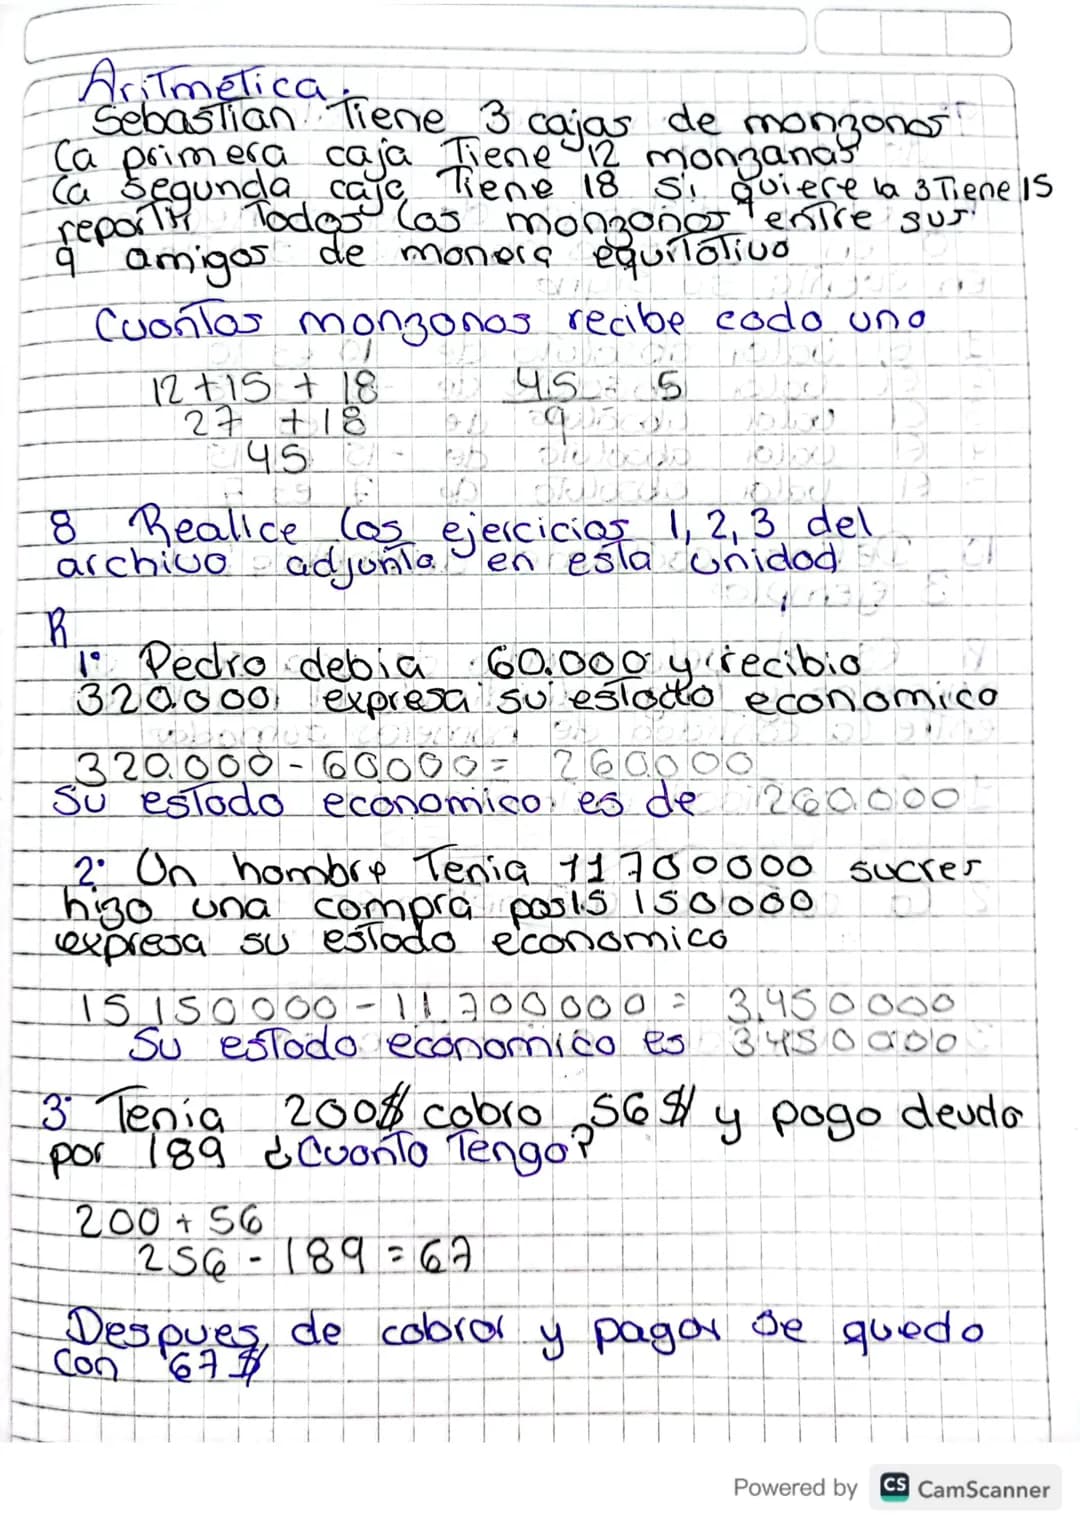 Aritmetica.
Sebastian Tiene 3 cajas de monzonos
La primera caja Tiene 12 monzanas
La segunda caja Tiene 18 si quiere la 3 Tiene 15
repartir Todos los monzonos entre sus
9 amigos de monera equitotivo
Cuontos monzonos recibe codo uno
12+15 + 18 45 = 5
27 + 18 9
45
8 Realice los ejercicios 1, 2, 3 del
archivo adjunto en esta unidad
R
1° Pedro debia 60.000 y recibio
320.000 expresa su estado economico
320.000 - 60000 = 260000
Su estodo economico es de 260.000
2° Un hombre Tenia 11700000 sucres
hizo una compra por 15 150000
expresa su estodo economico
15 150000 - 11.700000 = 3.450000
Su estodo economico es 3450000
3° Tenia 200$ cobro 56$ y pogo deuda
por 189 ¿Cuonto Tengo?
200 + 56
256 - 189 = 67
Despues de cobror y pagar se quedo
con 67$
Powered by CS CamScanner